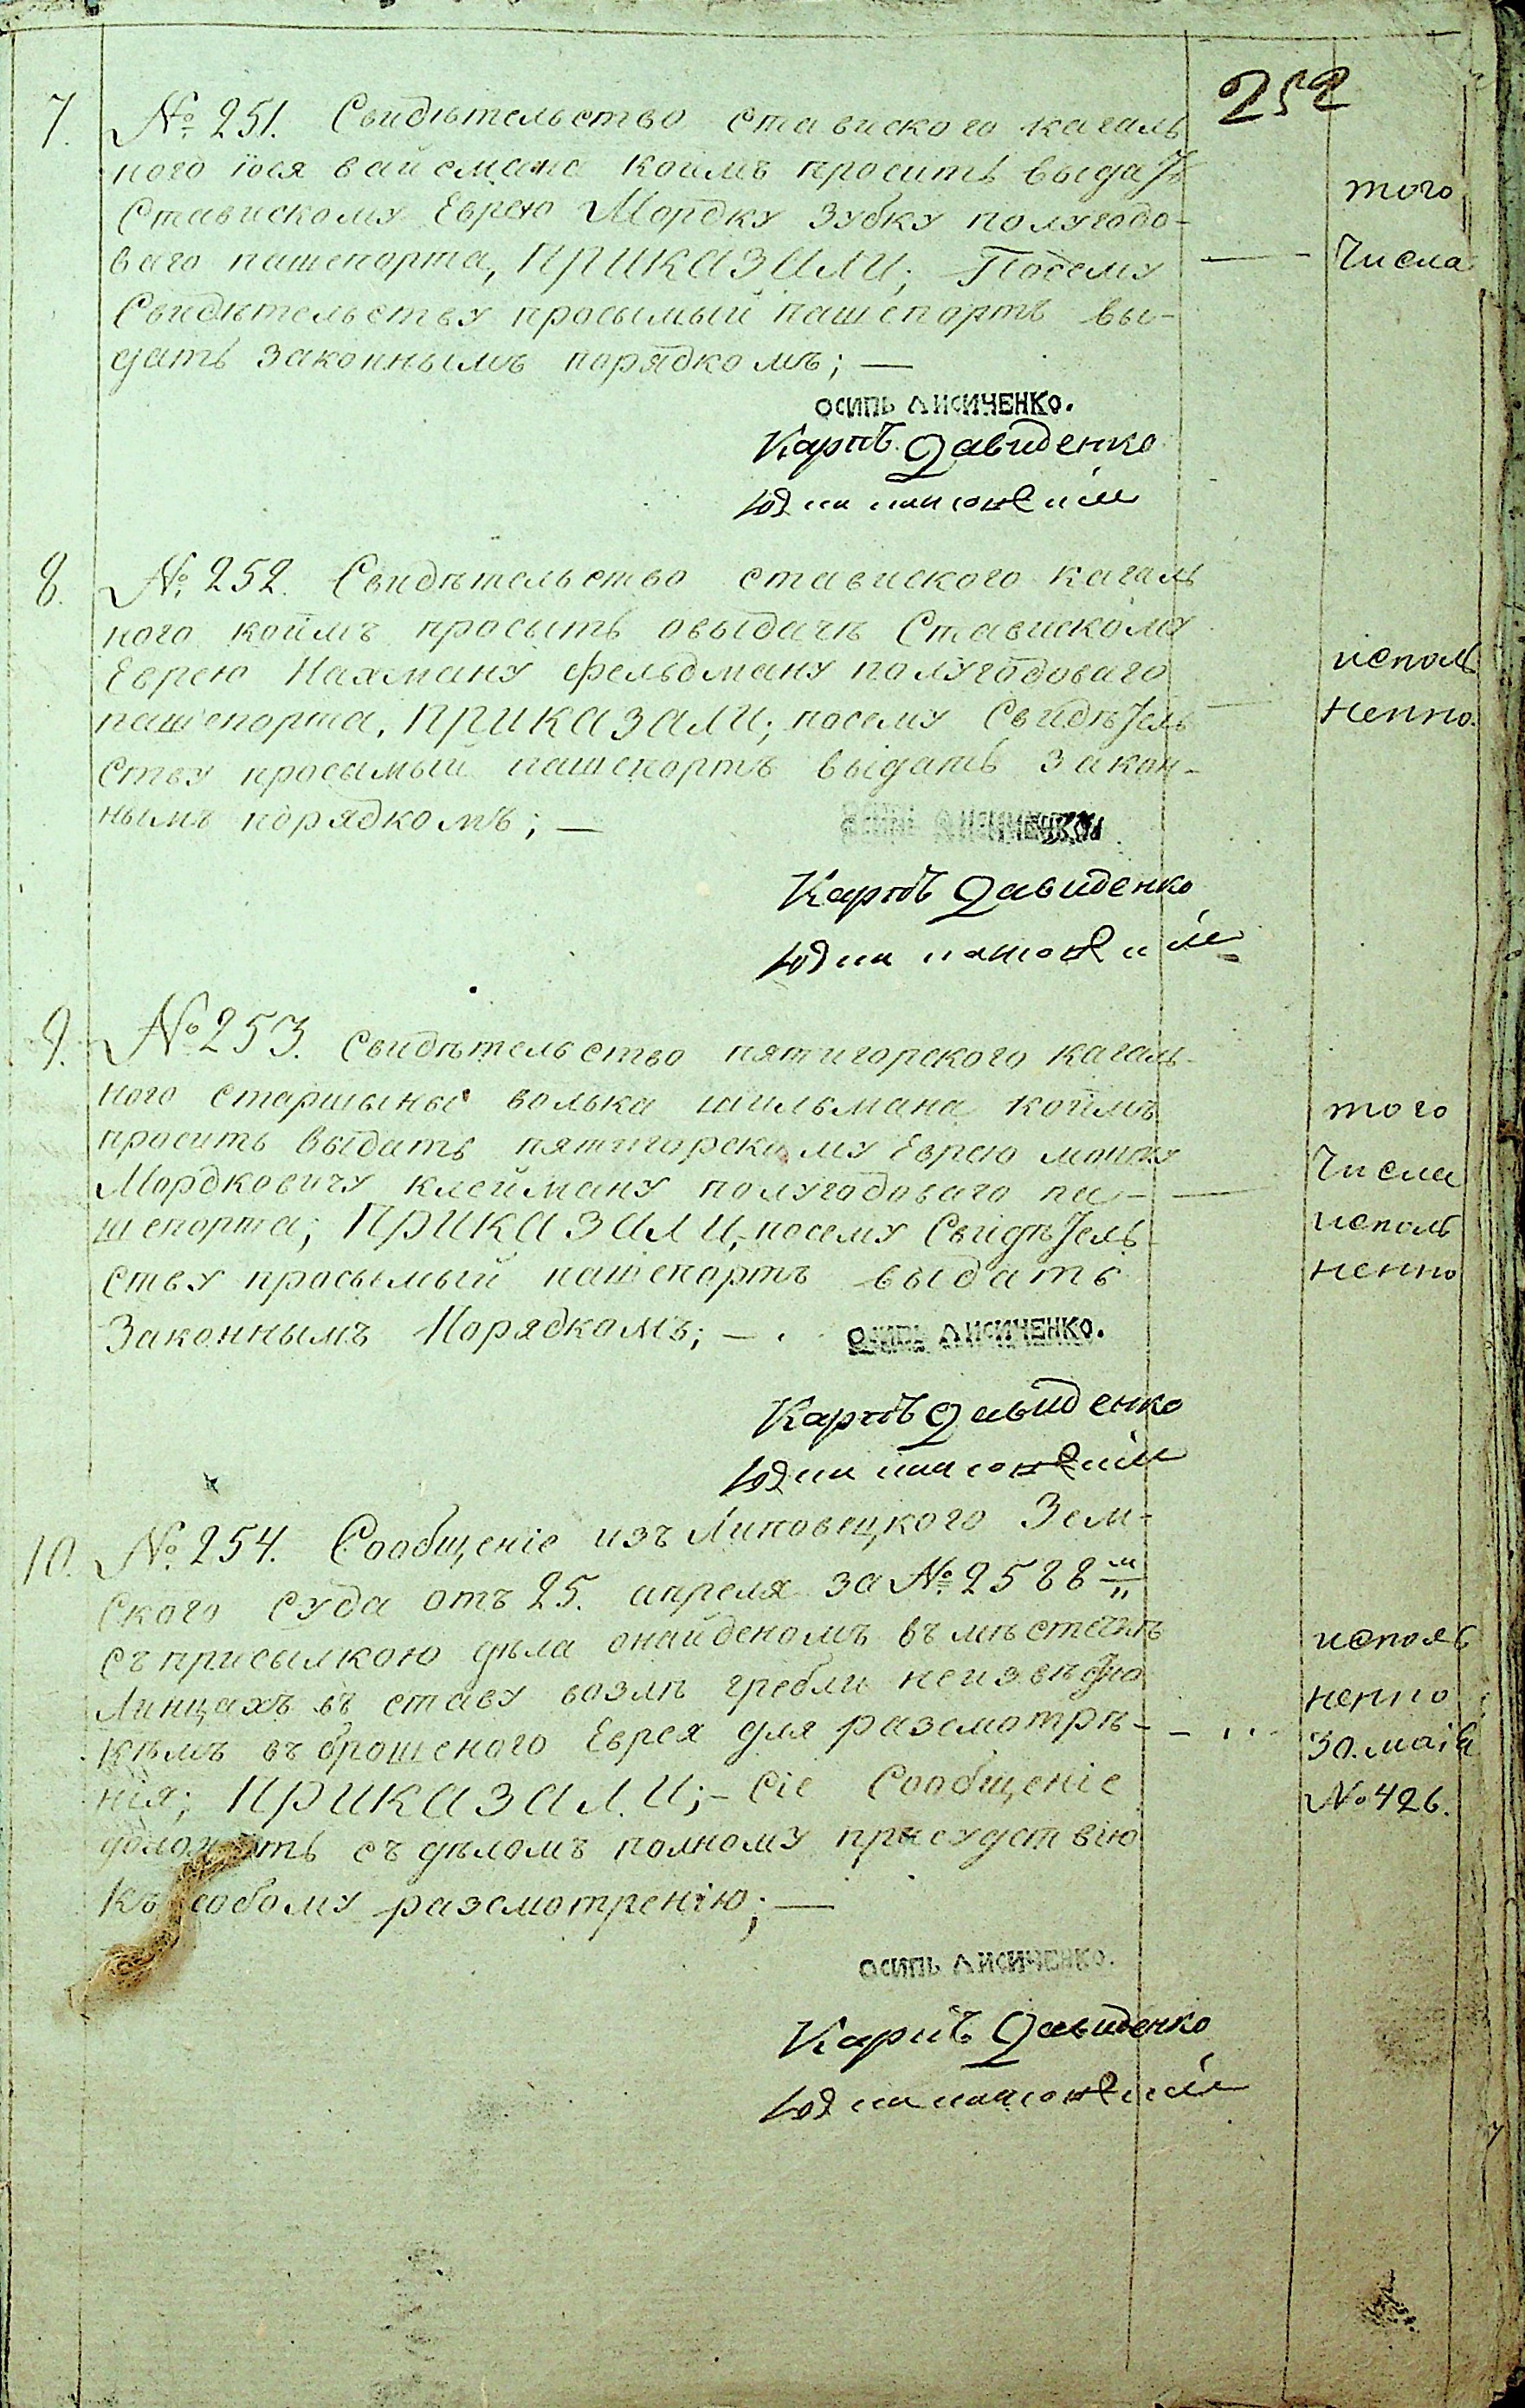 252
7. № 251. Свидѣтельство ставиского кагаль
ного іося вайсмана коимъ просить выдать
Ставискому Еврею Мордку Зубку полугодо-
ваго пашепорта, ПРИКАЗАЛИ; Посему
Свидѣтельству просымый пашепортъ вы-
дать законнымъ порядкомъ; —
того
Числа
ОСИПЬ ЛИСИЧЕНКО.
Карпъ Давиденко
8. № 252. Свидѣтельство ставиского кагаль
ного коимъ просыть овыдачѣ Ставискому
Еврею Нахману Фельдману полугодоваго
пашепорта, ПРИКАЗАЛИ; посему Свидѣтель
ству просымый пашепортъ выдать Закон-
нымъ порядкомъ; —
исполь
ненно.
ОСИПЬ ЛИСИЧЕНКО.
Карпъ Давиденко
9. № 253. Свидѣтельство пятигорского кагаль-
ного старшыны волька шильмана коимъ
просить выдать пятигорскому Еврею мошку
Мордковичу клейману полугодоваго па-
шепорта; ПРИКАЗАЛИ, посему Свидѣтель-
ству просымый пашепортъ выдать
Законнымъ Порядкомъ; —
того
Числа
исполь
ненно
ОСИПЬ ЛИСИЧЕНКО.
Карпъ Давиденко
10. № 254. Сообщеніе изъ Липовецкого Зем-
ского суда отъ 25. апреля за № 2588
съ присылкою дѣла онайденомъ въ мѣстечкѣ
Линцахъ въ ставу возлѣ гребли неизвѣстно
кѣмъ въброшеного Еврея для разсмотрѣ-
нія; ПРИКАЗАЛИ; - сіе Сообщеніе
доложить съ дѣломъ полному присудствію
къ особому разсмотренію; —
исполь
ненно
30. маія
№ 426.
ОСИПЬ ЛИСИЧЕНКО.
Карпъ Давиденко